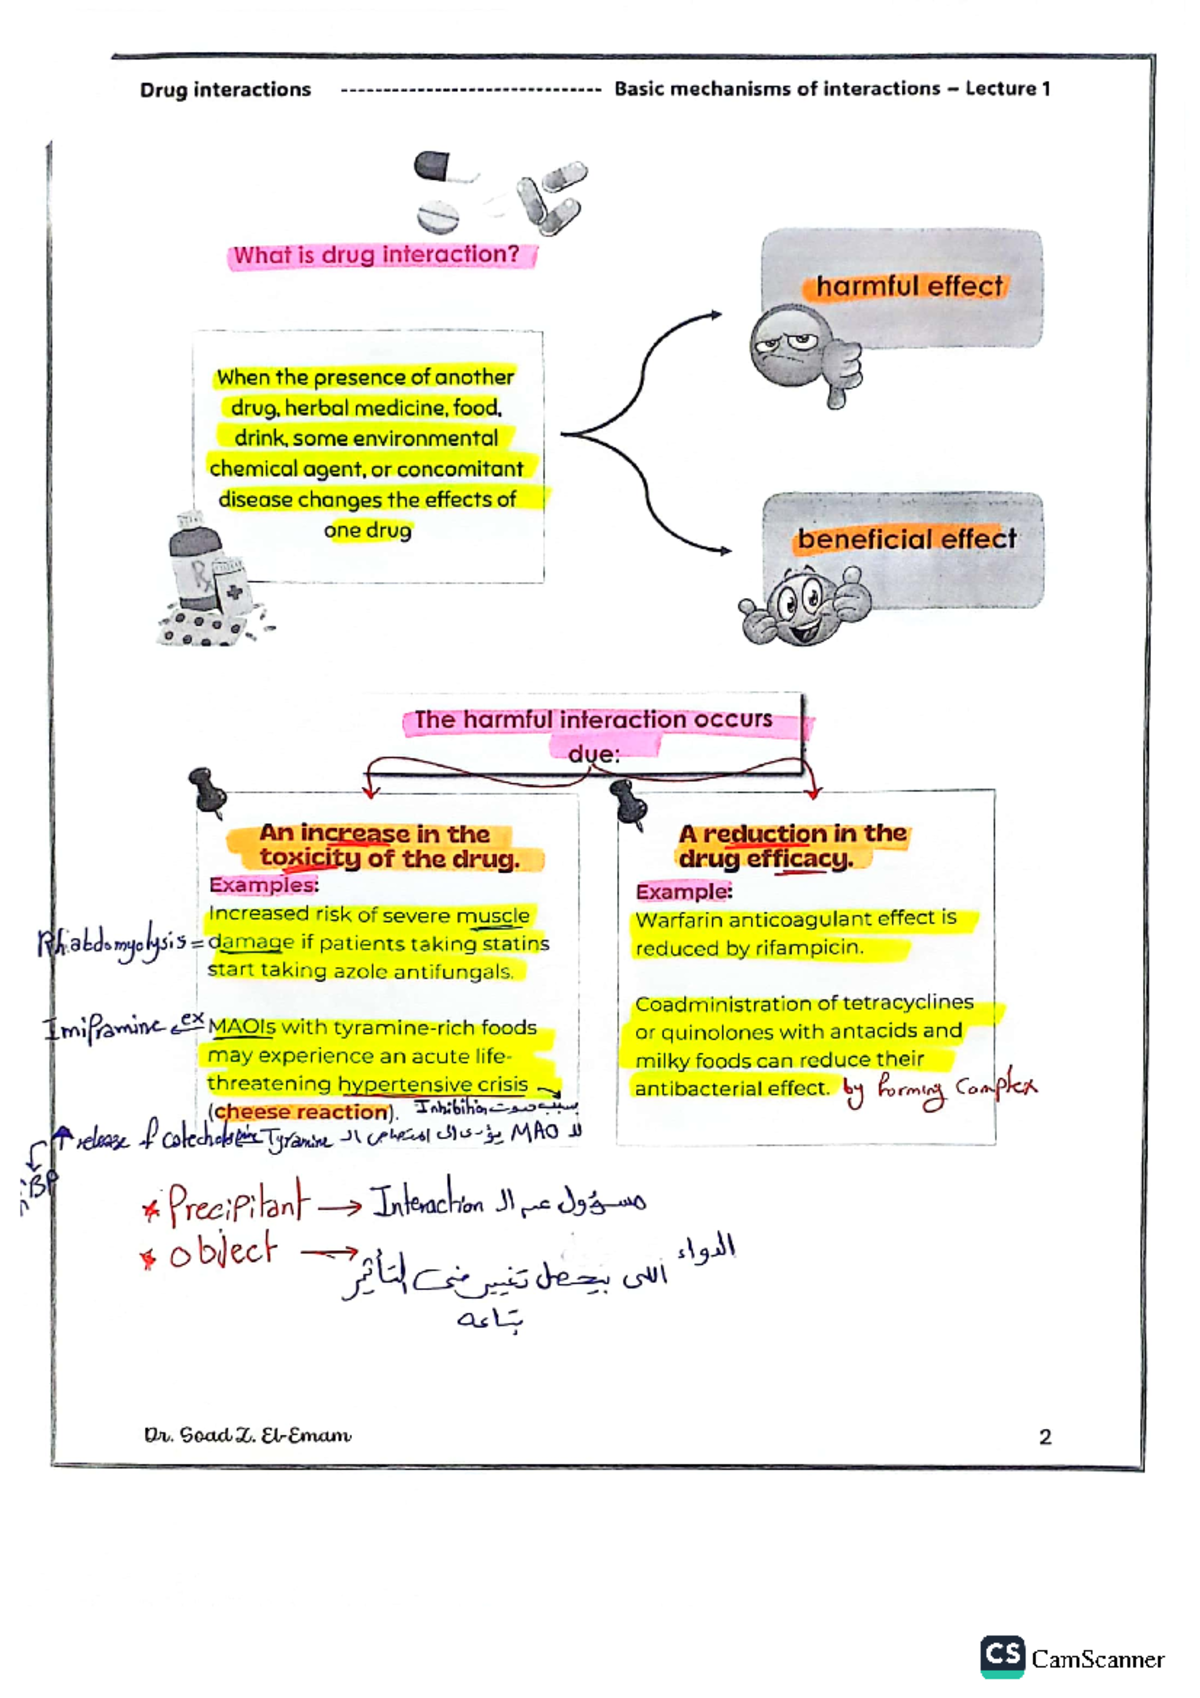 Drug interactions ------------------------------- Basic mechanisms of interactions – Lecture 1
What is drug interaction?
harmful effect
When the presence of another
drug, herbal medicine, food,
drink, some environmental
chemical agent, or concomitant
disease changes the effects of
one drug
beneficial effect
The harmful interaction occurs
due:
An increase in the
toxicity of the drug.
Examples:
Increased risk of severe muscle
Rhabdomyolysis = damage if patients taking statins
start taking azole antifungals.
Imipramine ex MAOIs with tyramine-rich foods
may experience an acute life-
threatening hypertensive crisis
(cheese reaction). Inhibition
لا MAO يؤدى الى امتصاص ال Tyramine
↑ release of
↑BP
A reduction in the
drug efficacy.
Example:
Warfarin anticoagulant effect is
reduced by rifampicin.
Coadministration of tetracyclines
or quinolones with antacids and
milky foods can reduce their
antibacterial effect. by forming Complex
* Precipitant → مسؤول عن ال Interaction
* object → الدواء اللى بيحصل تغيير فى التأثير
بتاعه
Dr. Soad Z. El-Emam
2
CS CamScanner